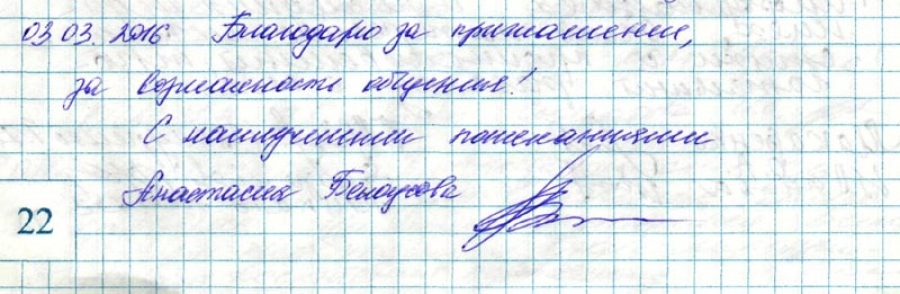 03 03. 2016 Благодарю за приглашение,
за возможность общения!
С наилучшими пожеланиями
Анастасия Белоусова
22